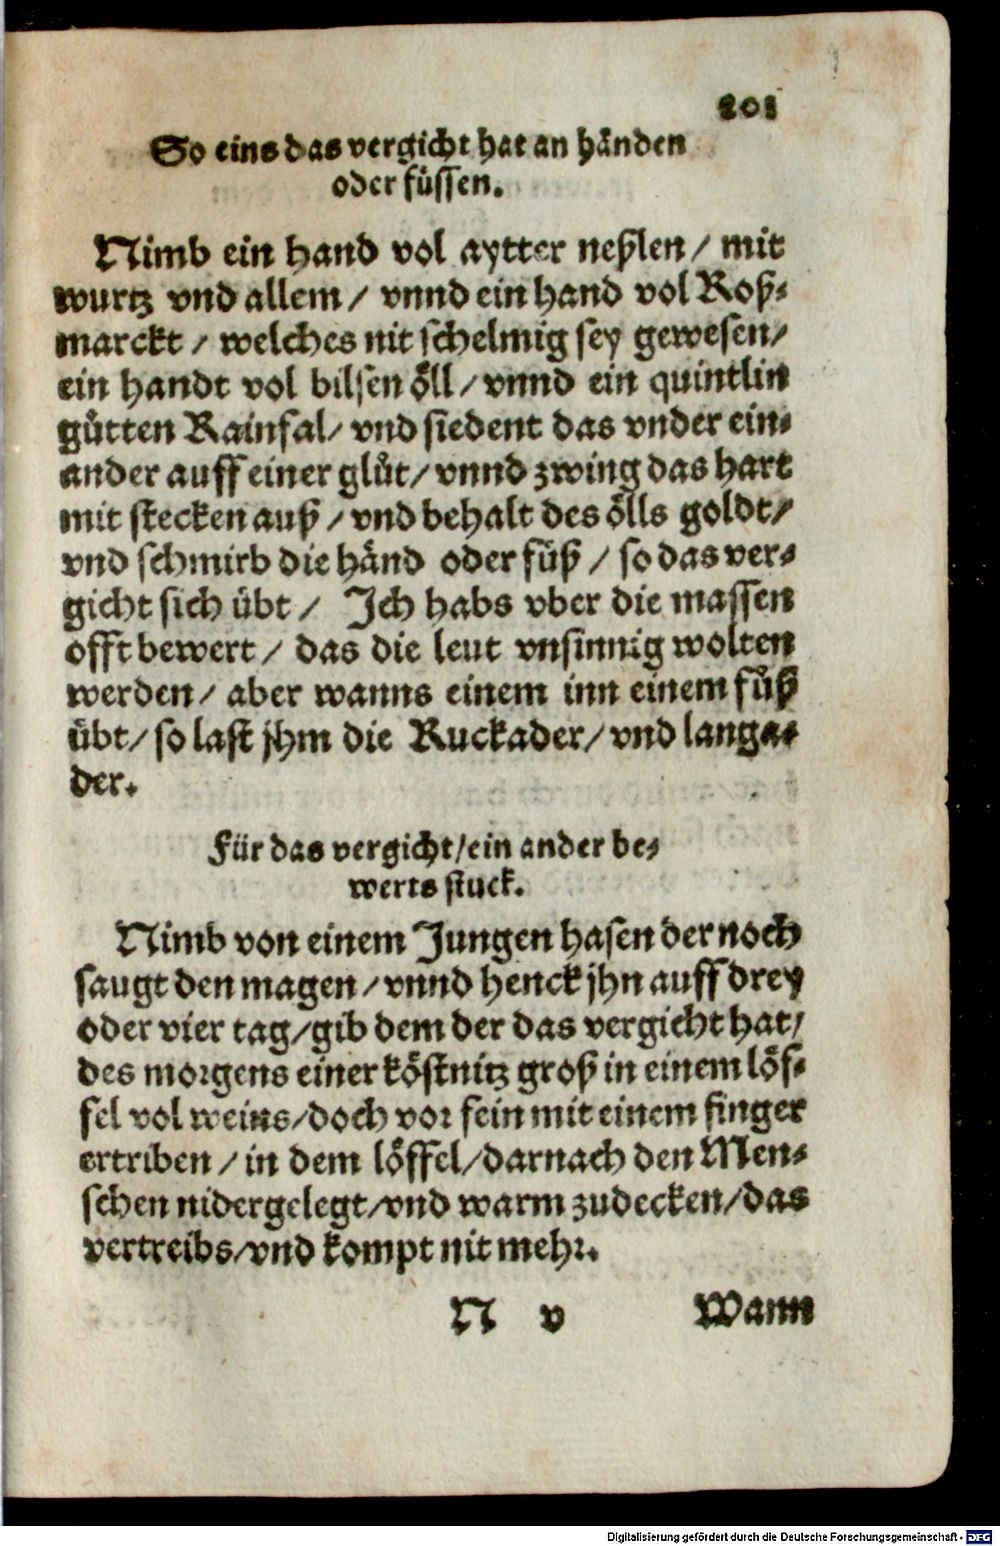 201
So eins das vergicht hat an händen
oder füssen.
Nimb ein hand vol aytter neßlen / mit
wurtz vnd allem / vnnd ein hand vol Roß-
marckt / welches nit schelmig sey gewesen /
ein handt vol bilsen öll / vnnd ein quintlin
gůtten Rainfal / vnd siedent das vnder ein-
ander auff einer glůt / vnnd zwing das hart
mit stecken auß / vnd behalt des ölls goldt /
vnd schmirb die händ oder fůß / so das ver-
gicht sich übt / Ich habs vber die massen
offt bewert / das die leut vnsinnig wolten
werden / aber wanns einem inn einem fůß
übt / so last jhm die Ruckader / vnd langa-
der.
Für das vergicht / ein ander be-
werts stuck.
Nimb von einem Jungen hasen der noch
saugt den magen / vnnd henck jhn auff drey
oder vier tag / gib dem der das vergicht hat /
des morgens einer köstnitz groß in einem löf-
fel vol weins / doch vor fein mit einem finger
ertriben / in dem löffel / darnach den Men-
schen nidergelegt / vnd warm zudecken / das
vertreibs / vnd kompt nit mehr.
N v Wann
Digitalisierung gefördert durch die Deutsche Forschungsgemeinschaft - DFG